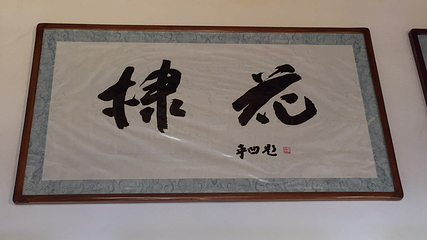 棣花
平凹题